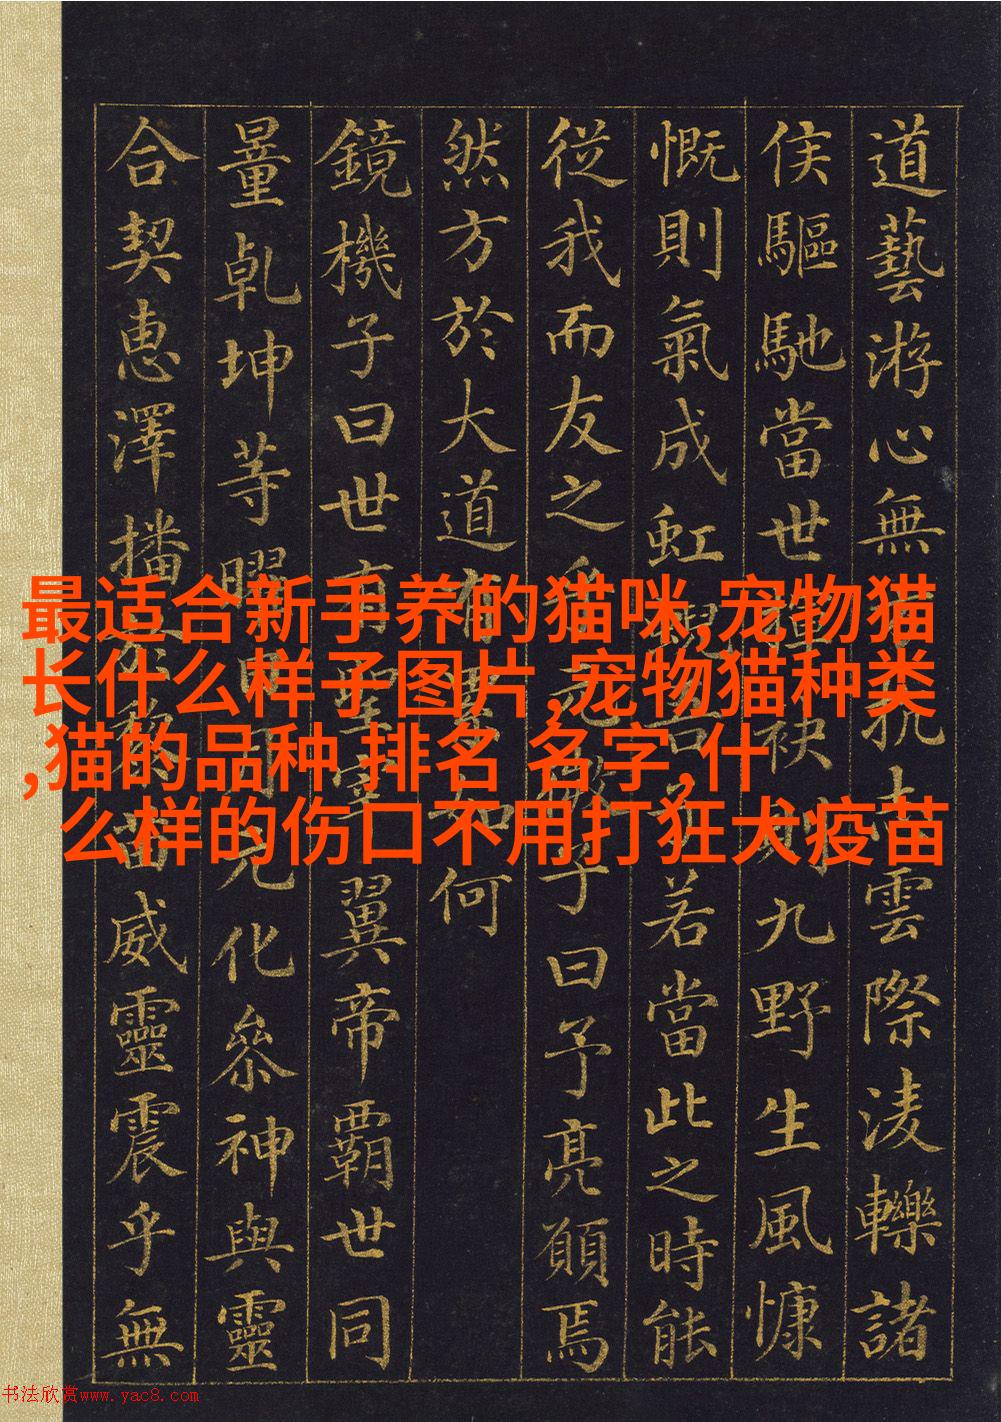 道藝游心無抗志雲際淩轢諸
侯驅馳當世揮袂則九野生風慷
慨則氣成虹蜺吾子若當此之時能
從我而友之乎玄微子曰予亮願焉
然方於大道有累如何
鏡機子曰世有聖宰翼帝霸世同
量乾坤等曜日月玄化參神與靈
合契惠澤播於黎苗威靈震乎無
最适合新手养的猫咪,宠物猫
长什么样子图片,宠物猫种类
,猫的品种 排名 名字,什
么样的伤口不用打狂犬疫苗
书法欣赏www.yac8.com